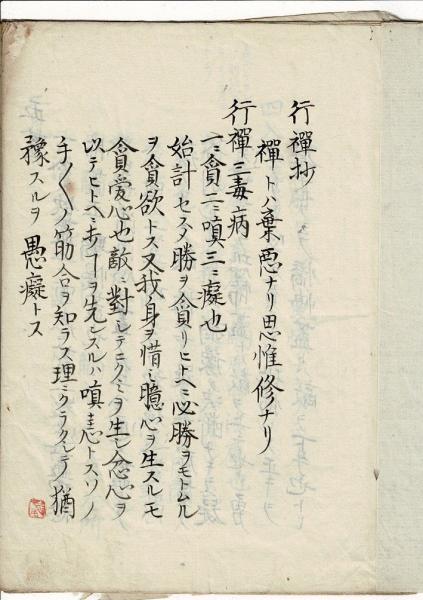 行禪抄
禪トハ棄悪ナリ思惟修ナリ
行禪三毒病
一ニ貪二ニ嗔三ニ癡也
始計セスタ勝ヲ貪リヒトヘニ必勝ヲモトムル
ヲ貪欲トス又我身ヲ惜ミ臆心ヲ生スルモ
貪愛心也敵ニ對シテニクミヲ生シ忿心ヲ
以テヒトヘニ歩ヿヲ先ンズルハ嗔恚トスソノ
手〱ノ筋合ヲ知ラス理ニクラクシテ猶
豫スルヲ愚癡トス